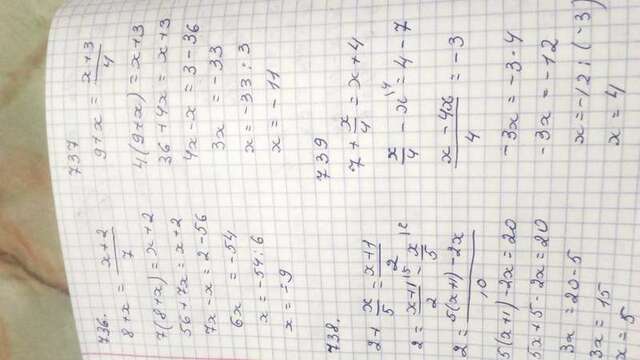 736.
8+x = \frac{x+2}{7}
7(8+x) = x+2
56+7x = x+2
7x-x = 2-56
6x = -54
x = -54:6
x = -9
737
9+x = \frac{x+3}{4}
4(9+x) = x+3
36+4x = x+3
4x-x = 3-36
3x = -33
x = -33:3
x = -11
738.
2+\frac{x}{5} = \frac{x+1}{2}
2 = \frac{x+1}{2}^{15} - \frac{x}{5}^{12}
2 = \frac{5(x+1)-2x}{10}
5(x+1)-2x = 20
5x+5-2x = 20
3x = 20-5
3x = 15
x = 5
739
7+\frac{x}{4} = x+4
\frac{x}{4} - x^{14} = 4-7
\frac{x-4x}{4} = -3
-3x = -3·4
-3x = -12
x = -12:(-3)
x = 4